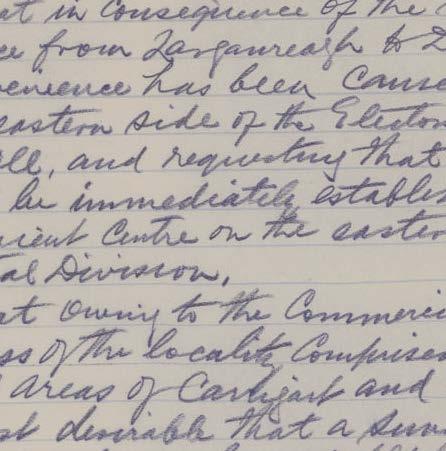 at in consequence of the
ce from Larganreagh to D
venience has been Cause
eastern side of the Elector
ll, and requesting that
be immediately establis
nient Centre on the easter
al Division.
at owing to the Commerci
ss of the locality Comprise
areas of Carrigart and
st desirable that a